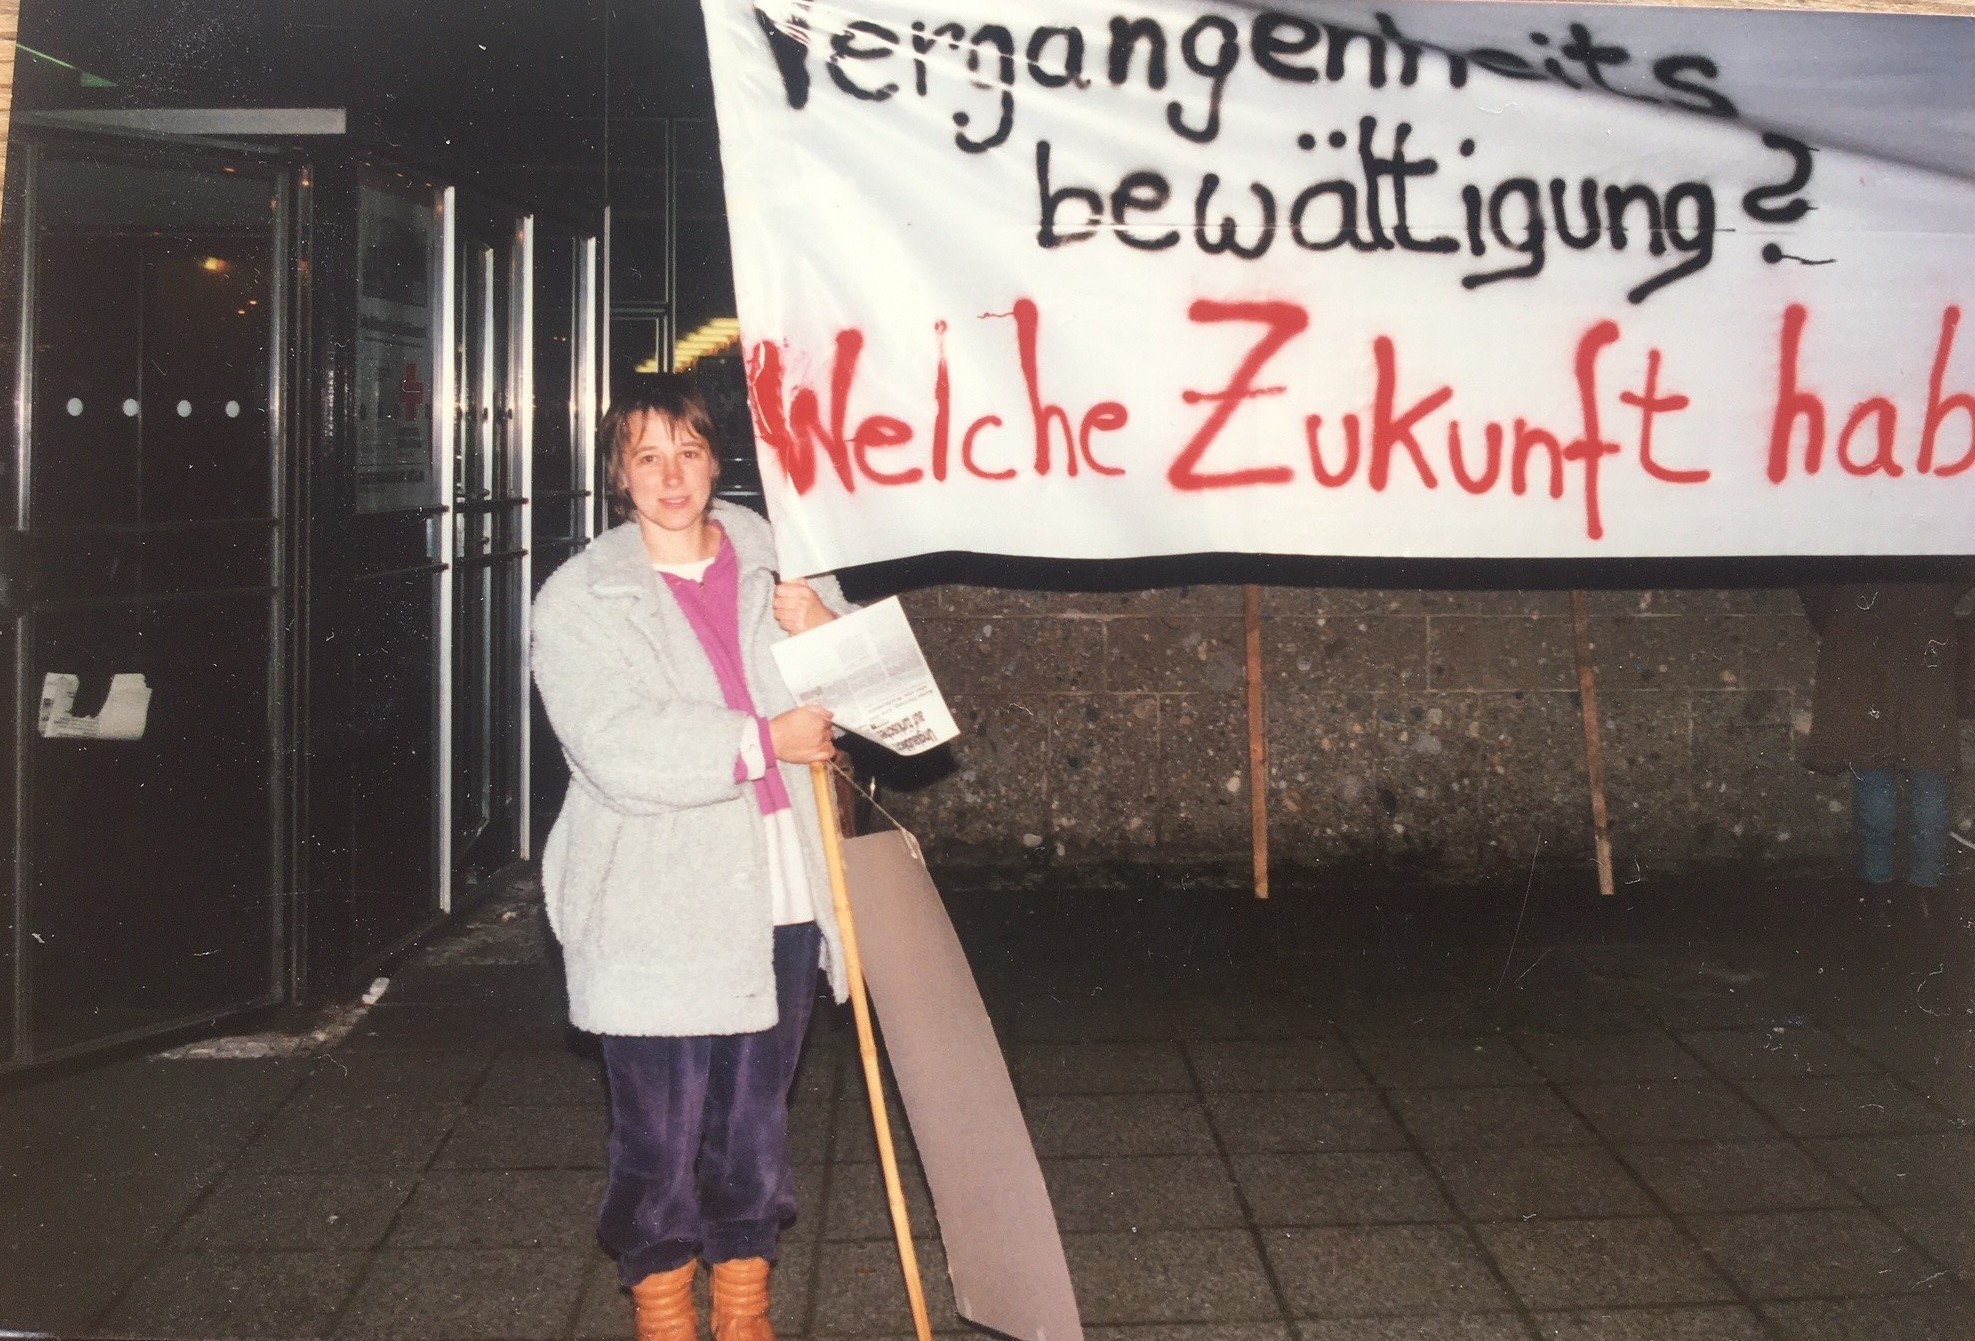 Vergangenheits
bewältigung?
Welche Zukunft hab